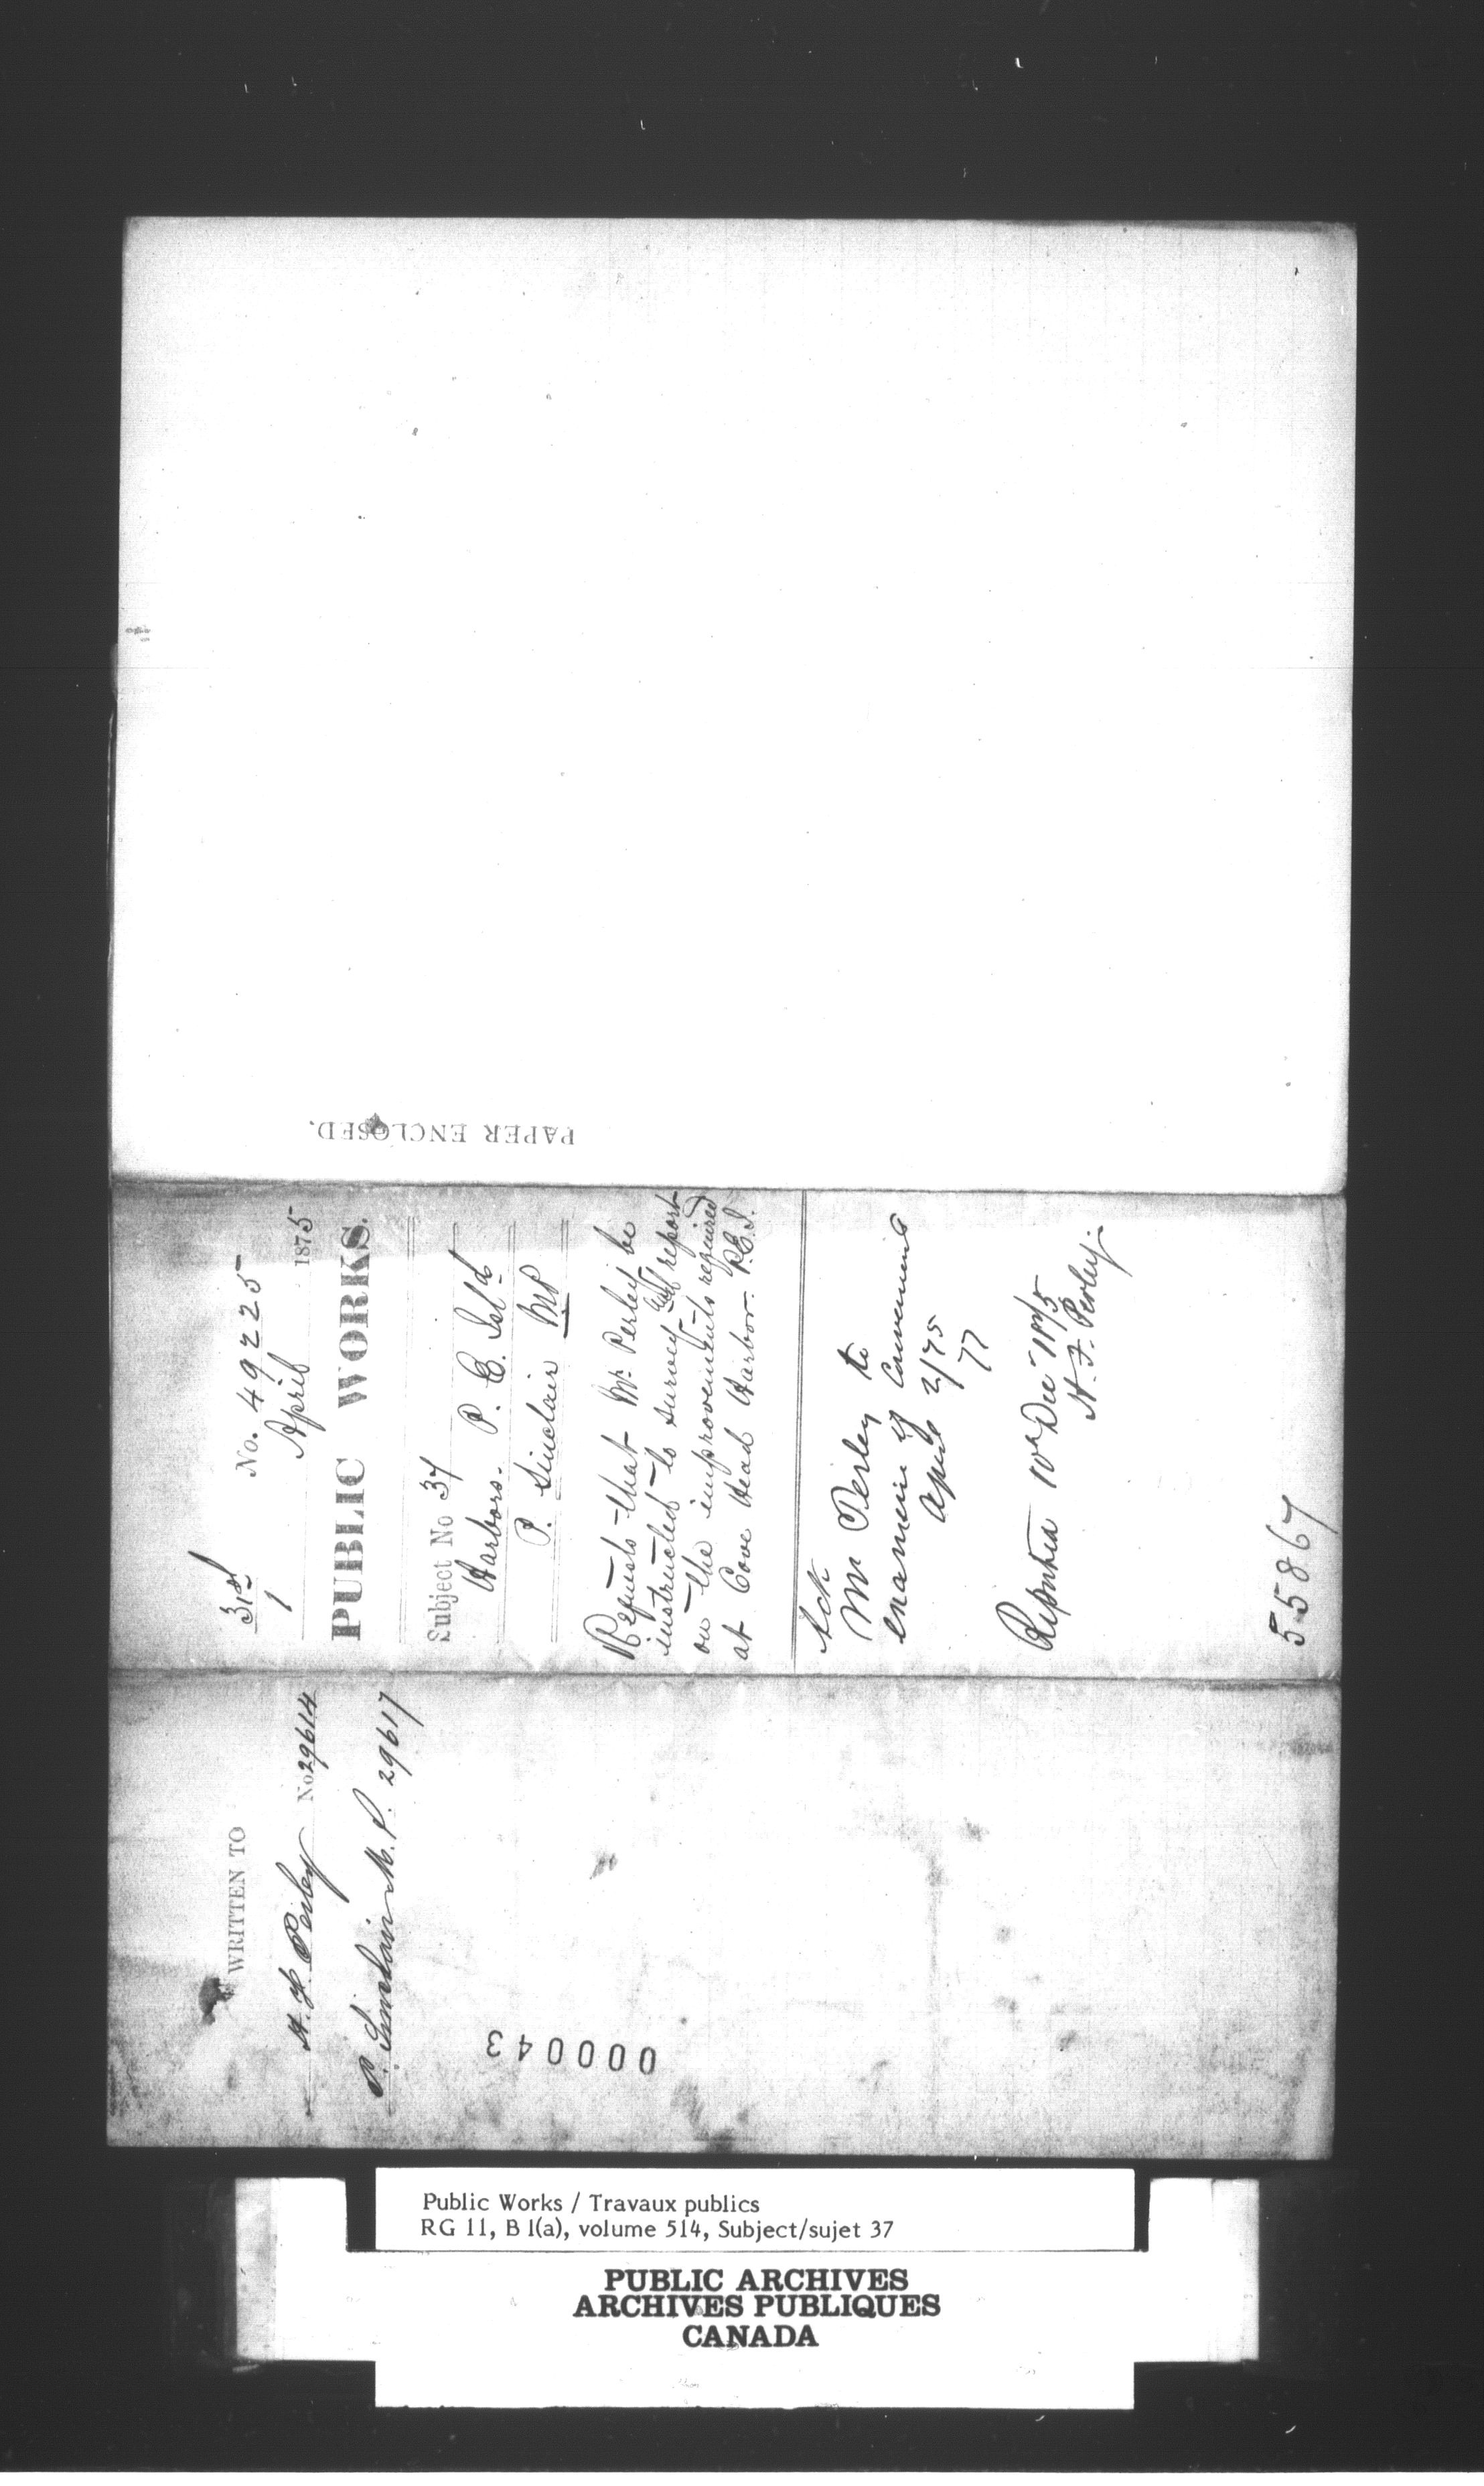 PAPER ENCLOSED.
31st
1
No. 49225
April 1875
PUBLIC WORKS.
Subject No 37
Harbors. P. E. Isld
P. Sinclair MP
Requests that Mr. Perley be
instructed to survey and report
on the improvements required
at Cove Head Harbor. P.E.I.
Ack
Mr Perley to
examine if convenient
April 2/75
Reported 10th Decr 1875
H. F. Perley
55867
WRITTEN TO
H. F. Perley No 29614
P. Sinclair M.P. 29617
000043
Public Works / Travaux publics
RG 11, B 1(a), volume 514, Subject/sujet 37
PUBLIC ARCHIVES
ARCHIVES PUBLIQUES
CANADA